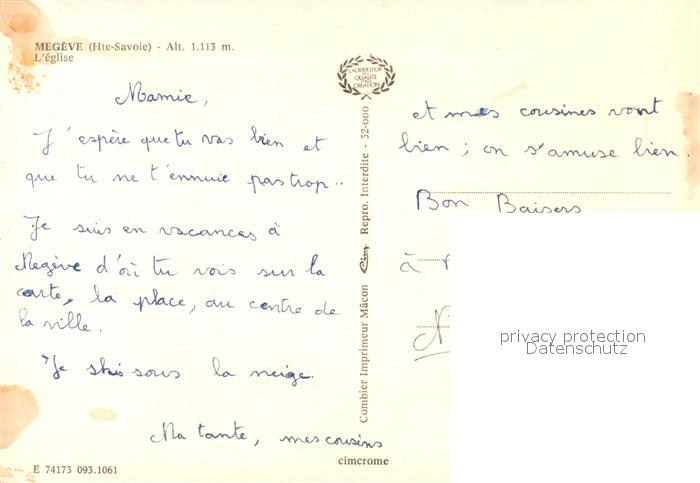 MEGÈVE (Hte-Savoie) - Alt. 1.113 m.
L'église
Mamie,
J'espère que tu vas bien et
que tu ne t'ennuie pas trop..
Je suis en vacances à
Megève d'où tu vois sur la
carte, la place, au centre de
la ville.
Je skis sous la neige.
Ma tante, mes cousins
E 74173 093.1061
cimcrome
LAURIER D'OR
DE LA
QUALITÉ
CRÉATION
Combier Imprimeur Mâcon Cim Repro. Interdite - 32-000
et mes cousines vont
bien ; on s'amuse bien.
Bon Baisers
à
privacy protection
Datenschutz